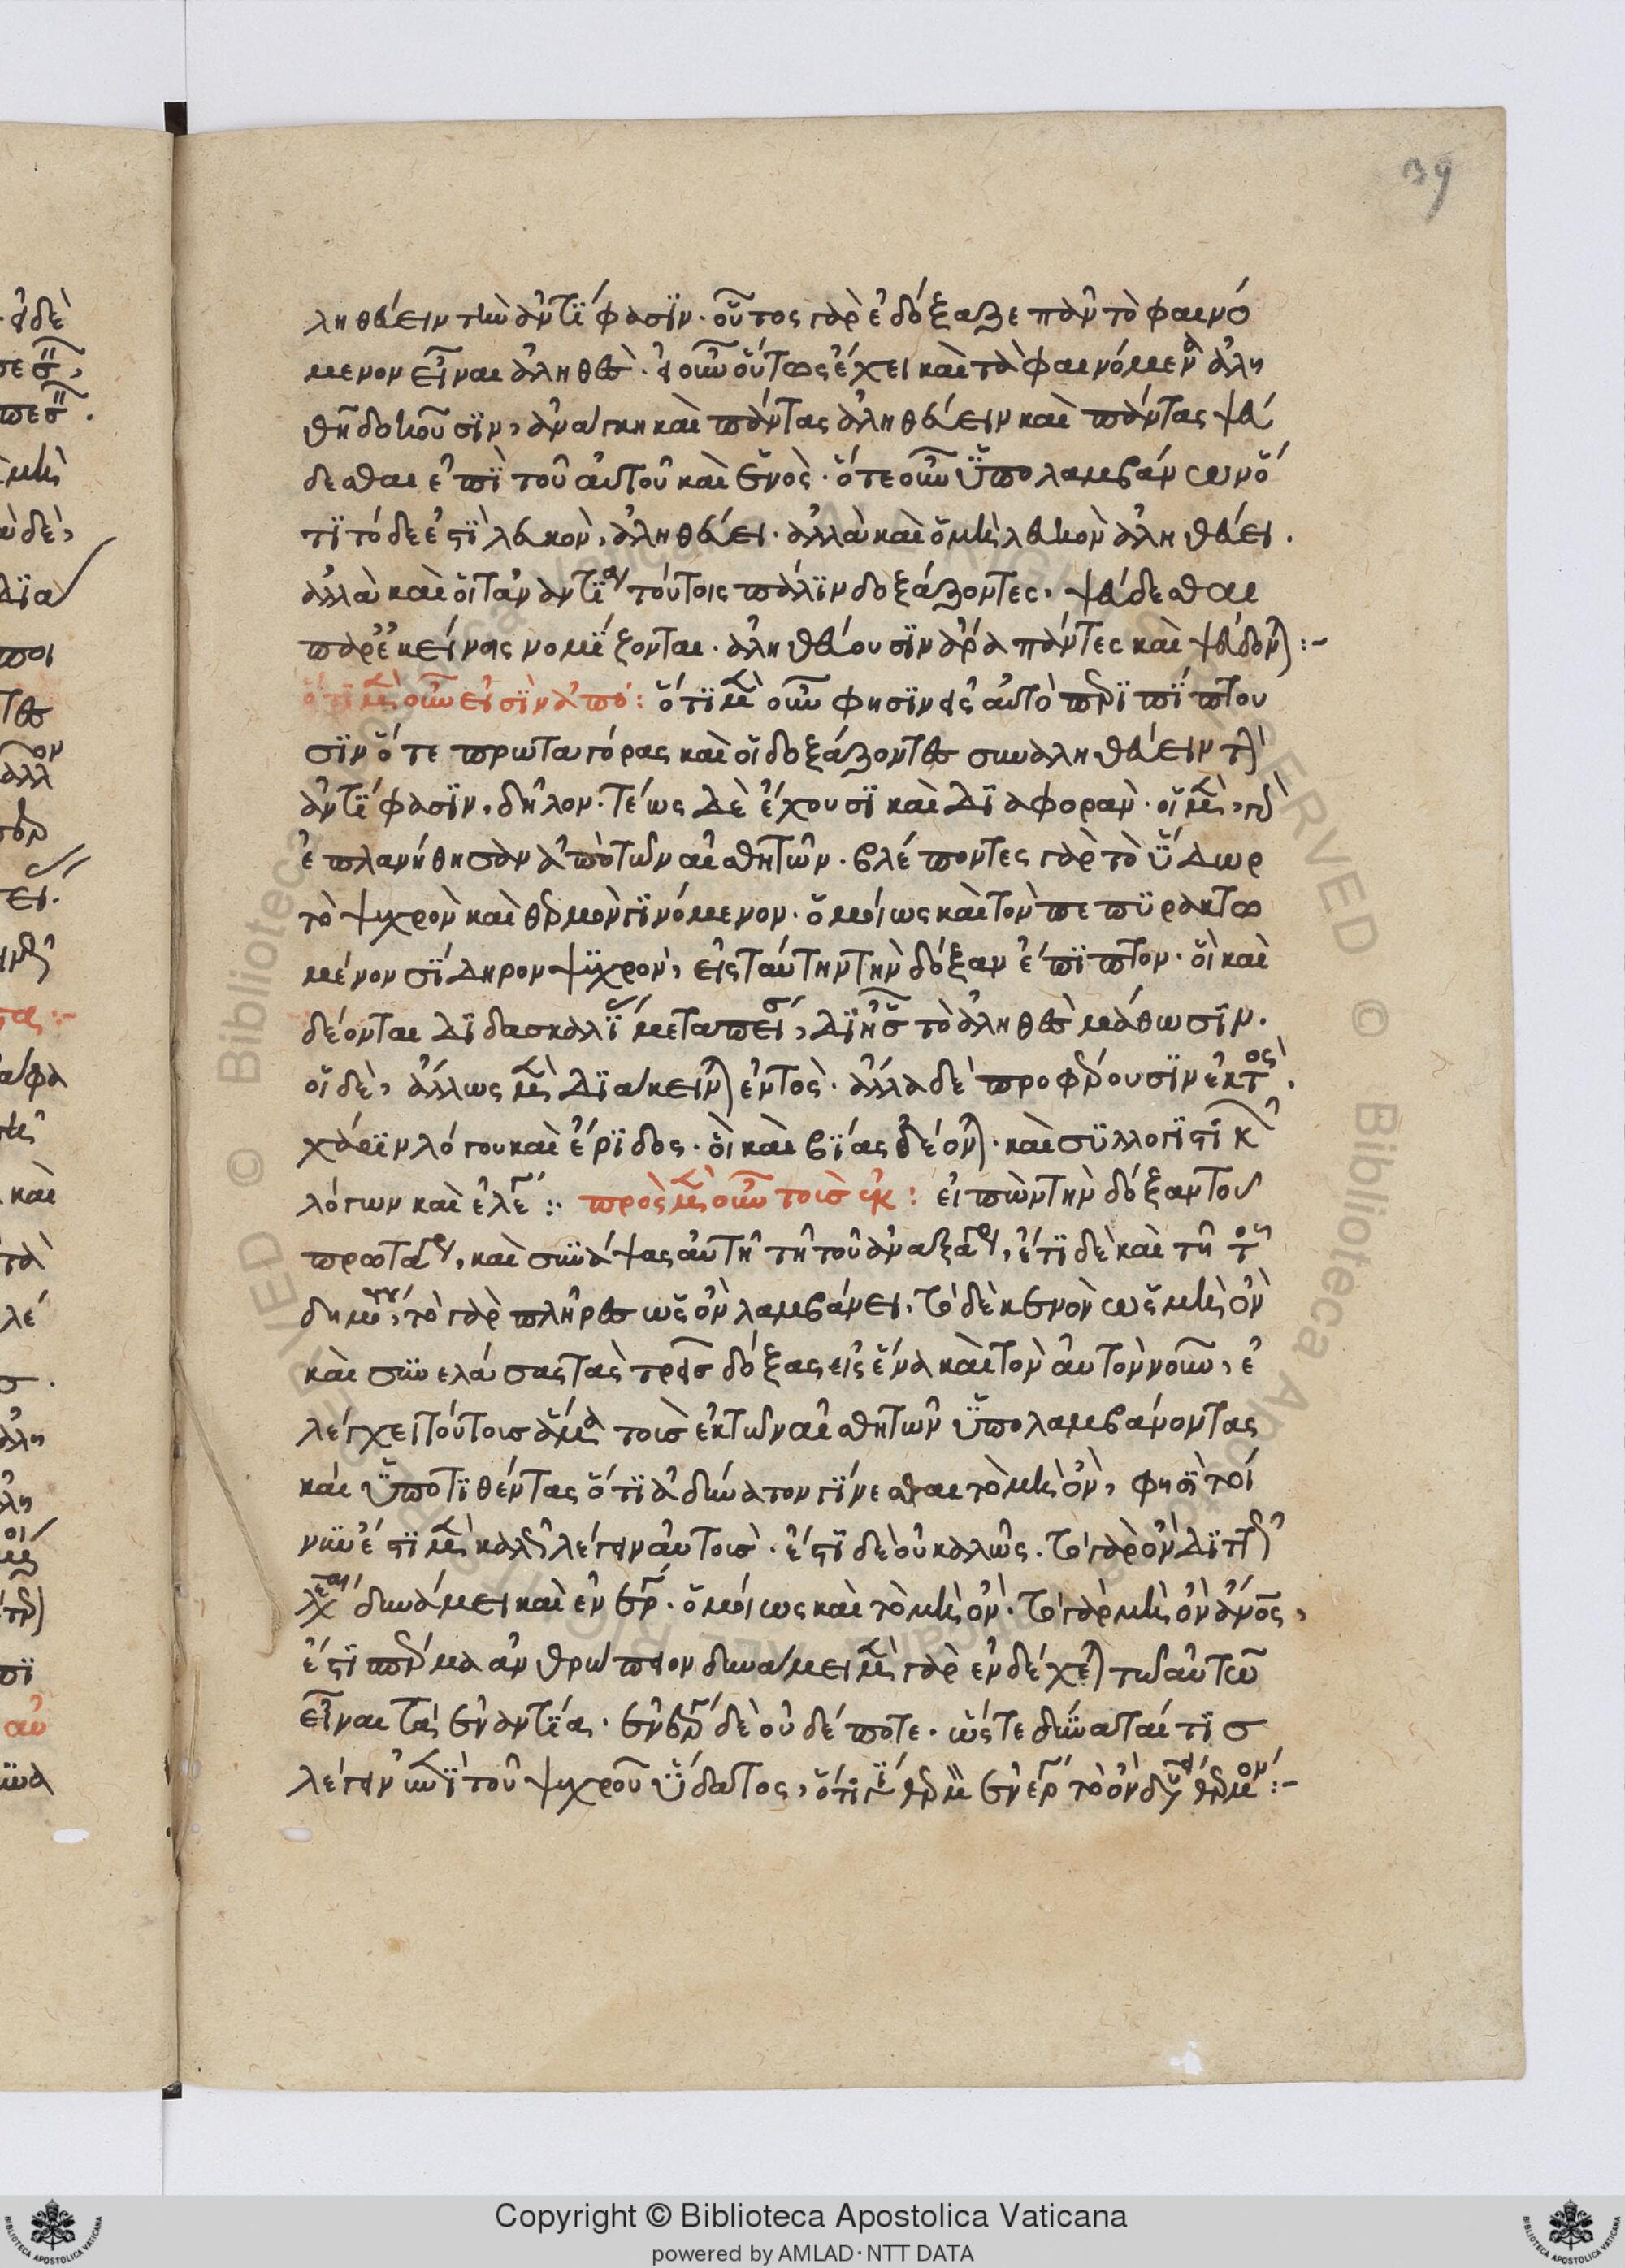 39
ληθεύειν τὴν ἀντίφασιν. οὗτος γὰρ ἐδόξαζε πᾶν τὸ φαινό
μενον εἶναι ἀληθές. εἰ οὖν οὕτως ἔχει καὶ τὰ φαινόμενα ἀλη
θῆ δοκοῦσιν, ἀνάγκη καὶ πάντας ἀληθεύειν καὶ πάντας ψεύ
δεσθαι ἐπὶ τοῦ αὐτοῦ καὶ ἑνός. ὅτε οὖν ὑπολαμβάνων ὅ
τι τόδε ἐστὶ λευκὸν, ἀληθεύει. ἀλλὰ καὶ ὁ μὴ λευκὸν ἀληθεύει.
ἀλλὰ καὶ οἱ τἀναντία τούτοις πάλιν δοξάζοντες, ψεύδεσθαι
παρ' ἐκείνοις νομίζονται. ἀληθεύουσιν ἄρα πάντες καὶ ψεύδονται :-
ὅτι μὲν οὖν εἰσὶν ἀπό: ὅτι μὲν οὖν φησιν εἰς αὐτὸ περιπίπτου
σιν ὅ τε πρωταγόρας καὶ οἱ δοξάζοντες συναληθεύειν τὴν
ἀντίφασιν, δῆλον. τέως δὲ ἔχουσι καὶ διαφοράν. οἱ μὲν, γὰρ
ἐπλανήθησαν ἀπὸ τῶν αἰσθητῶν. βλέποντες γὰρ τὸ ὕδωρ
τὸ ψυχρὸν καὶ θερμὸν γινόμενον. ὁμοίως καὶ τὸν πεπυρακτω
μένον σίδηρον ψυχρὸν, εἰς ταύτην τὴν δόξαν ἔπιπτον. οἳ καὶ
δέονται διδασκαλίας μεταπείσεως, δι' ἧς τὸ ἀληθὲς μάθωσιν.
οἱ δὲ, ἄλλως μὲν διάκεινται ἐντός. ἄλλα δὲ προφέρουσιν ἐκτός.
χάριν λόγου καὶ ἔριδος. οἳ καὶ βίας δέονται. καὶ συλλογιστικῶν
λόγων καὶ ἐλέγχου :· πρὸς μὲν οὖν τοὺς ἐκ: εἰπὼν τὴν δόξαν τοῦ
πρωταγόρου, καὶ συνάψας αὐτῇ τῇ τοῦ ἀναξαγόρου, ἔτι δὲ καὶ τῇ τοῦ
δημοκρίτου, τὸ γὰρ πλῆρες ὡς ὂν λαμβάνει. τὸ δὲ κενὸν ὡς μὴ ὂν
καὶ συνελάσας τὰς τρεῖς δόξας εἰς ἕνα καὶ τὸν αὐτὸν νοῦν, ἐ
λέγχει τούτοις ἅμα τοὺς ἐκ τῶν αἰσθητῶν ὑπολαμβάνοντας
καὶ ὑποτιθέντας ὅτι ἀδύνατον γίνεσθαι τὸ μὴ ὂν, φησὶ τοί
νυν ἔστι μὲν καλῶς λέγειν αὐτούς. ἔστι δὲ οὐ καλῶς. τὸ γὰρ ὂν διττῶς
λέγεται δυνάμει καὶ ἐνεργείᾳ. ὁμοίως καὶ τὸ μὴ ὄν. τὸ γὰρ μὴ ὂν ἄνθρωπος,
ἔστι σπέρμα ἀνθρώπειον δυνάμει μὲν γὰρ ἐνδέχεται τῷ αὐτῷ
εἶναι τὰ ἐναντία. ἐνεργείᾳ δὲ οὐδέποτε. ὥστε δύναταί τις
λέγειν ἐπὶ τοῦ ψυχροῦ ὕδατος, ὅτι γίνεται θερμὸν ἐνεργείᾳ τὸ ὂν δυνάμει θερμόν :-